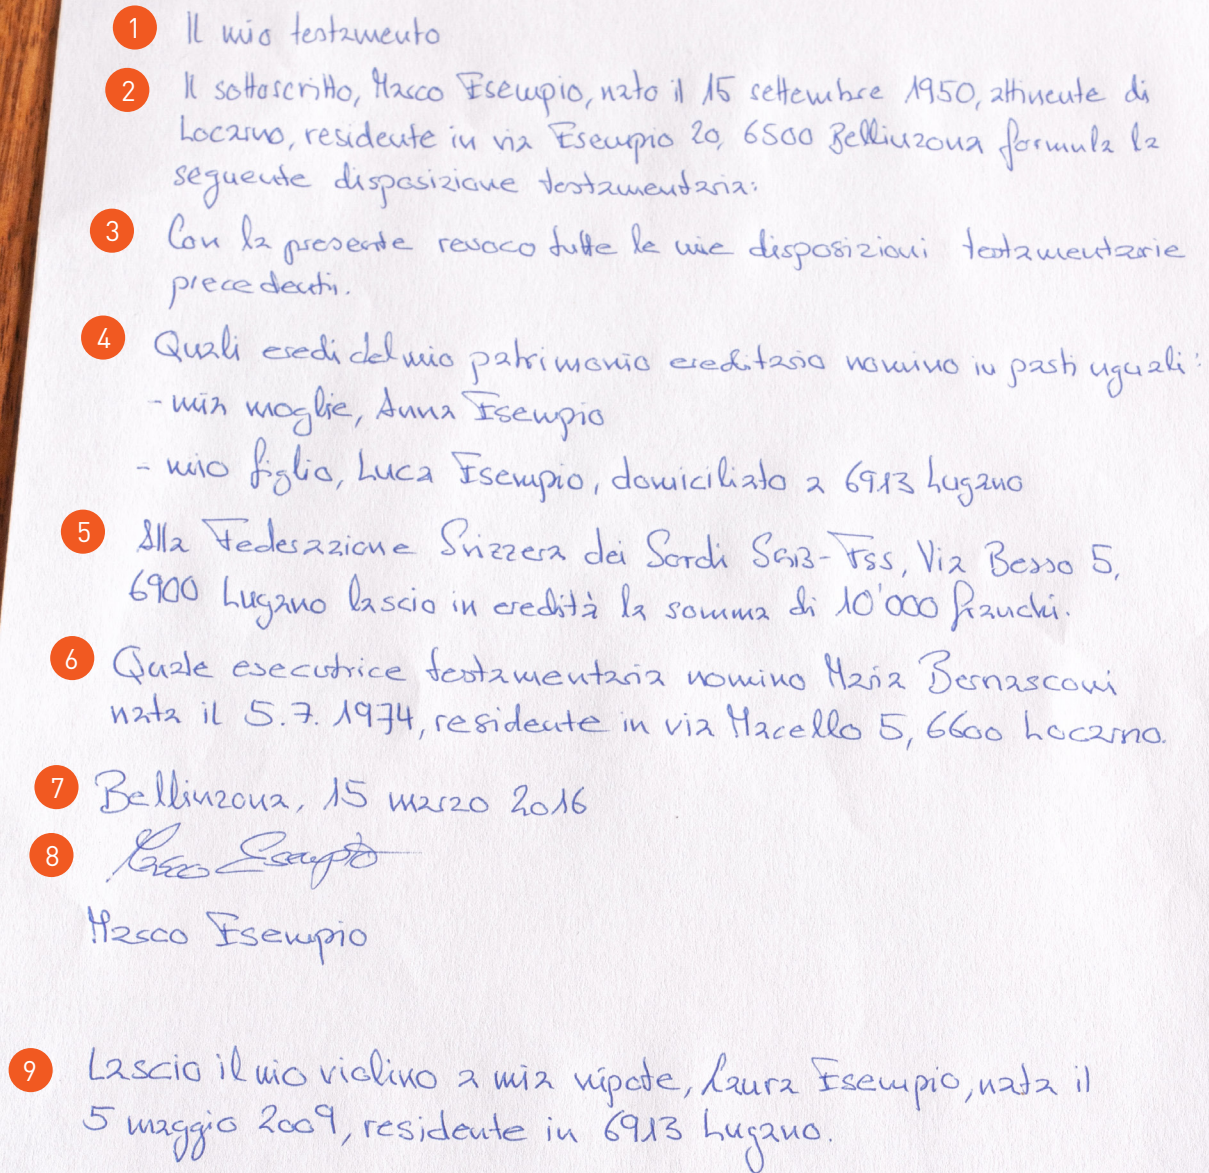 1 Il mio testamento
2 Il sottoscritto, Marco Esempio, nato il 15 settembre 1950, attinente di
Locarno, residente in via Esempio 20, 6500 Bellinzona formula la
seguente disposizione testamentaria:
3 Con la presente revoco tutte le mie disposizioni testamentarie
precedenti.
4 Quali eredi del mio patrimonio ereditario nomino in parti uguali:
- mia moglie, Anna Esempio
- mio figlio, Luca Esempio, domiciliato a 6913 Lugano
5 Alla Federazione Svizzera dei Sordi SGB-FSS, Via Besso 5,
6900 Lugano lascio in eredità la somma di 10'000 franchi.
6 Quale esecutrice testamentaria nomino Maria Bernasconi
nata il 5.7.1974, residente in via Macello 5, 6600 Locarno.
7 Bellinzona, 15 marzo 2016
8 Marco Esempio
Marco Esempio
9 Lascio il mio violino a mia nipote, Laura Esempio, nata il
5 maggio 2009, residente in 6913 Lugano.